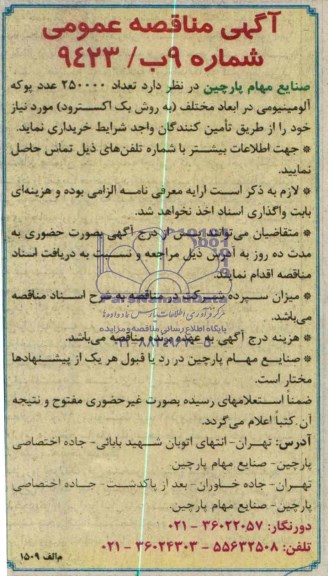 آگهی مناقصه عمومی
شماره ۹ب/ ۹۴۲۳
صنایع مهام پارچین در نظر دارد تعداد ۲۵۰۰۰۰ عدد پوکه
آلومینیومی در ابعاد مختلف (به روش بک اکسترود) مورد نیاز
خود را از طریق تأمین کنندگان واجد شرایط خریداری نماید.
* جهت اطلاعات بیشتر با شماره تلفن‌های ذیل تماس حاصل
نمایید.
* لازم به ذکر است ارایه معرفی نامه الزامی بوده و هزینه‌ای
بابت واگذاری اسناد اخذ نخواهد شد.
* متقاضیان می‌توانند پس از درج آگهی بصورت حضوری به
مدت ده روز به آدرس ذیل مراجعه و نسبت به دریافت اسناد
مناقصه اقدام نمایند.
* میزان سپرده شرکت در مناقصه به شرح اسناد مناقصه
می‌باشد.
* هزینه درج آگهی به عهده برنده مناقصه می‌باشد.
* صنایع مهام پارچین در رد یا قبول هر یک از پیشنهادها
مختار است.
ضمناً استعلامهای رسیده بصورت غیرحضوری مفتوح و نتیجه
آن کتباً اعلام می‌گردد.
آدرس: تهران- انتهای اتوبان شهید بابائی- جاده اختصاصی
پارچین- صنایع مهام پارچین.
تهران- جاده خاوران- بعد از پاکدشت- جاده اختصاصی
پارچین- صنایع مهام پارچین.
دورنگار: ۳۶۰۲۲۰۵۷ -۰۲۱
تلفن: ۵۵۶۳۲۵۰۸ - ۳۶۰۲۴۳۰۳ -۰۲۱
م‌الف ۱۵۰۹